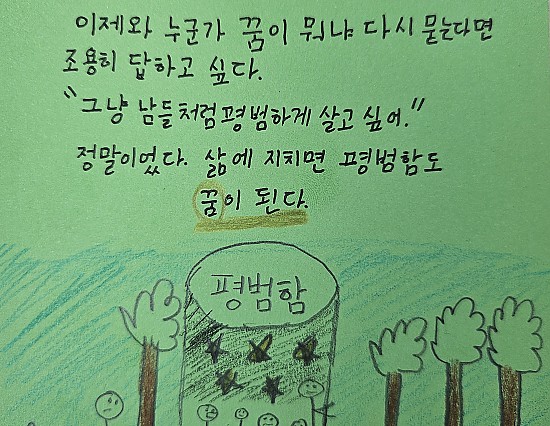 이제와 누군가 꿈이 뭐냐 다시 묻는다면
조용히 답하고 싶다.
"그냥 남들처럼 평범하게 살고 싶어."
정말이었다. 삶에 지치면 평범함도
꿈이 된다.
평범함